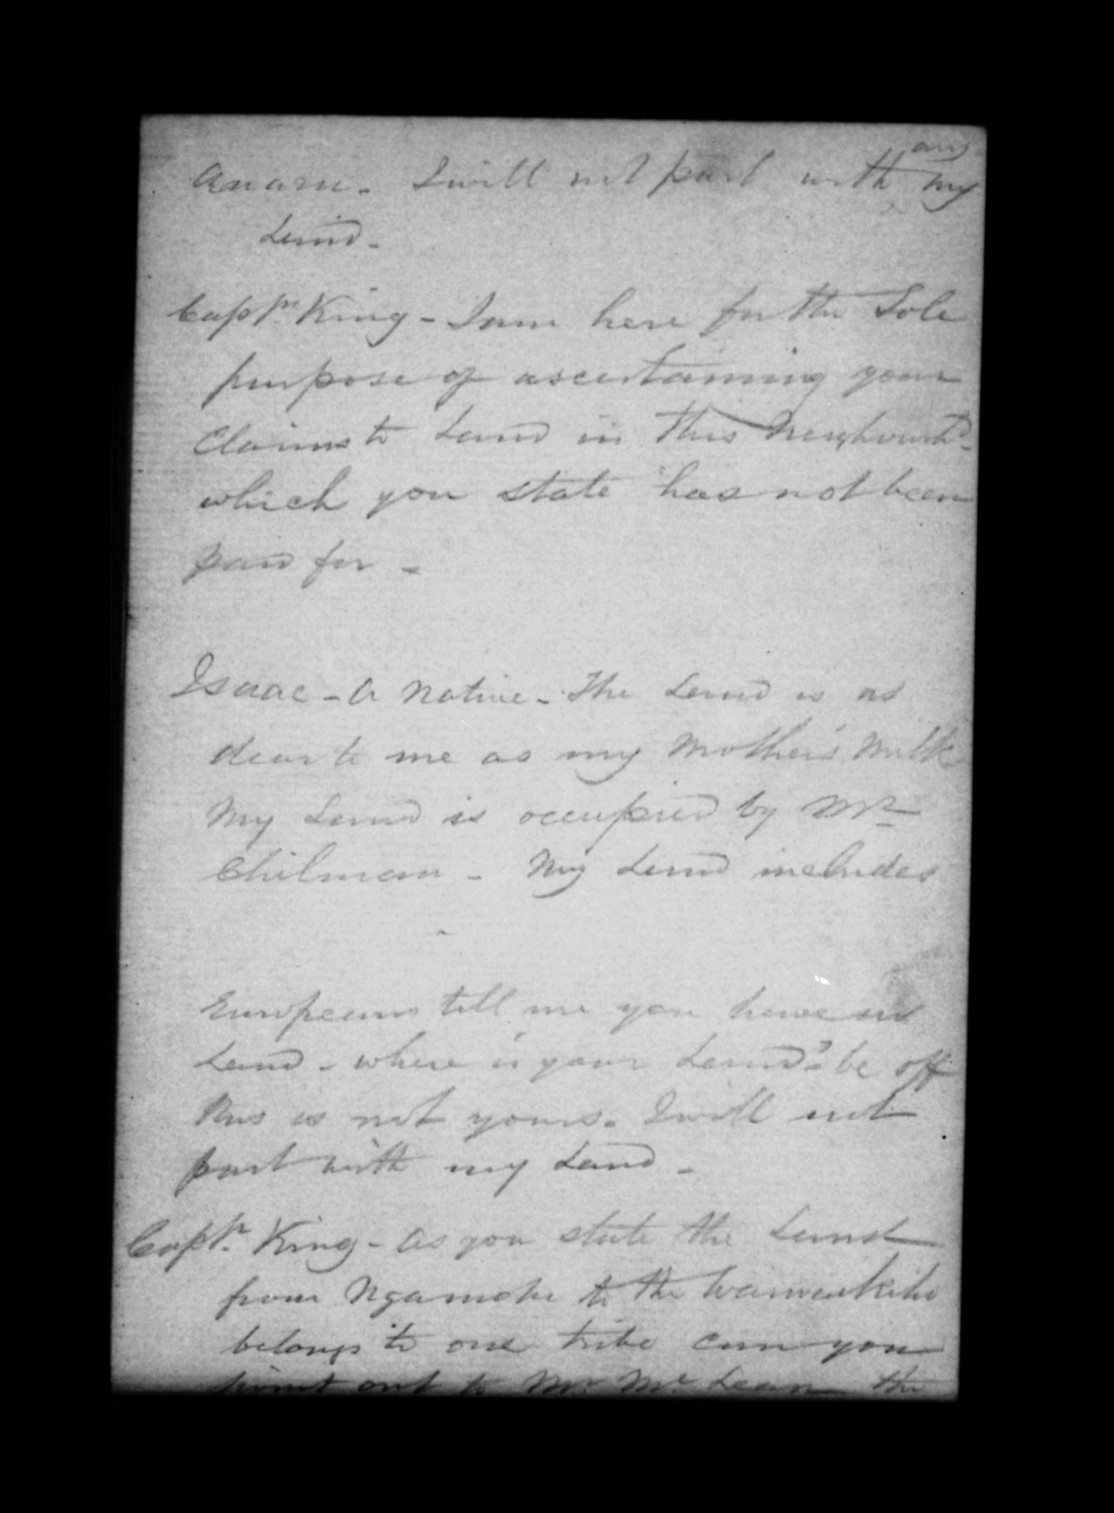 I will not part with any my
Land -
Captn King - I am here for the Sole
purpose of ascertaining your
Claims to Land in this
which you state has not been
paid for -
Isaac - A Native - The Land is as
dear to me as my Mother's Milk
My Land is occupied by Mr
Chilman - My Land includes
Europeans tell me you have no
Land - where is your Land? be off
this is not yours - I will not
part with my Land -
Captn King - As you state the Land
from Ngamotu to the
belongs to one tribe can you
point out to Mr Mc Lean the